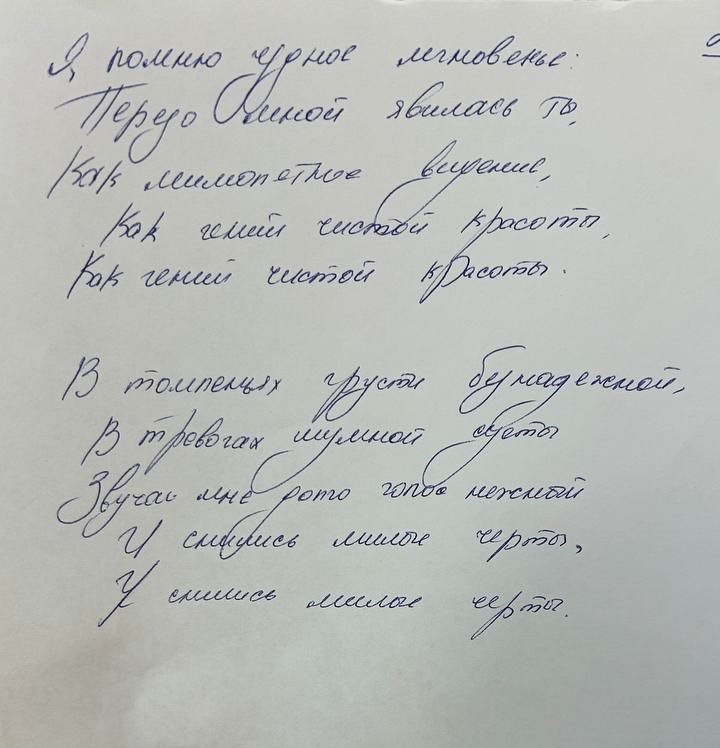 Я помню чудное мгновенье:
Передо мной явилась ты,
Как мимолетное видение,
Как гений чистой красоты,
Как гений чистой красоты.
В томленьях грусти безнадежной,
В тревогах шумной суеты
Звучал мне долго голос нежный
И снились милые черты,
И снились милые черты.